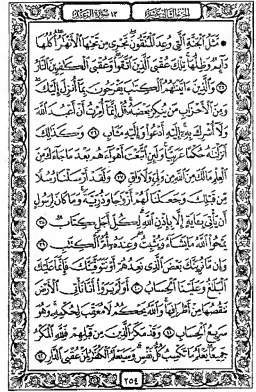 الجزء الثالث عشر ١٣ سورة الرعد
۞ مَّثَلُ الْجَنَّةِ الَّتِي وُعِدَ الْمُتَّقُونَ تَجْرِي مِن تَحْتِهَا الْأَنْهَٰرُ أُكُلُهَا
دَآئِمٌ وَظِلُّهَا تِلْكَ عُقْبَى الَّذِينَ اتَّقَوا وَّعُقْبَى الْكَٰفِرِينَ النَّارُ
٣٥ وَالَّذِينَ ءَاتَيْنَٰهُمُ الْكِتَٰبَ يَفْرَحُونَ بِمَآ أُنزِلَ إِلَيْكَ
وَمِنَ الْأَحْزَابِ مَن يُنكِرُ بَعْضَهُ قُلْ إِنَّمَآ أُمِرْتُ أَنْ أَعْبُدَ اللَّهَ
وَلَآ أُشْرِكَ بِهِ إِلَيْهِ أَدْعُوا وَإِلَيْهِ مَـَٔابِ ٣٦ وَكَذَٰلِكَ
أَنزَلْنَٰهُ حُكْمًا عَرَبِيًّا وَلَئِنِ اتَّبَعْتَ أَهْوَآءَهُم بَعْدَ مَا جَآءَكَ مِنَ
الْعِلْمِ مَا لَكَ مِنَ اللَّهِ مِن وَلِيٍّ وَلَا وَاقٍ ٣٧ وَلَقَدْ أَرْسَلْنَا رُسُلًا
مِّن قَبْلِكَ وَجَعَلْنَا لَهُمْ أَزْوَٰجًا وَذُرِّيَّةً وَمَا كَانَ لِرَسُولٍ
أَن يَأْتِيَ بِـَٔايَةٍ إِلَّا بِإِذْنِ اللَّهِ لِكُلِّ أَجَلٍ كِتَابٌ ٣٨
يَمْحُوا اللَّهُ مَا يَشَآءُ وَيُثْبِتُ وَعِندَهُ أُمُّ الْكِتَٰبِ ٣٩
وَإِن مَّا نُرِيَنَّكَ بَعْضَ الَّذِي نَعِدُهُمْ أَوْ نَتَوَفَّيَنَّكَ فَإِنَّمَا عَلَيْكَ
الْبَلَٰغُ وَعَلَيْنَا الْحِسَابُ ٤٠ أَوَلَمْ يَرَوْا أَنَّا نَأْتِي الْأَرْضَ
نَنقُصُهَا مِنْ أَطْرَافِهَا وَاللَّهُ يَحْكُمُ لَا مُعَقِّبَ لِحُكْمِهِ وَهُوَ
سَرِيعُ الْحِسَابِ ٤١ وَقَدْ مَكَرَ الَّذِينَ مِن قَبْلِهِمْ فَلِلَّهِ الْمَكْرُ
جَمِيعًا يَعْلَمُ مَا تَكْسِبُ كُلُّ نَفْسٍ وَسَيَعْلَمُ الْكُفَّٰرُ لِمَنْ عُقْبَى الدَّارِ ٤٢
٢٥٤